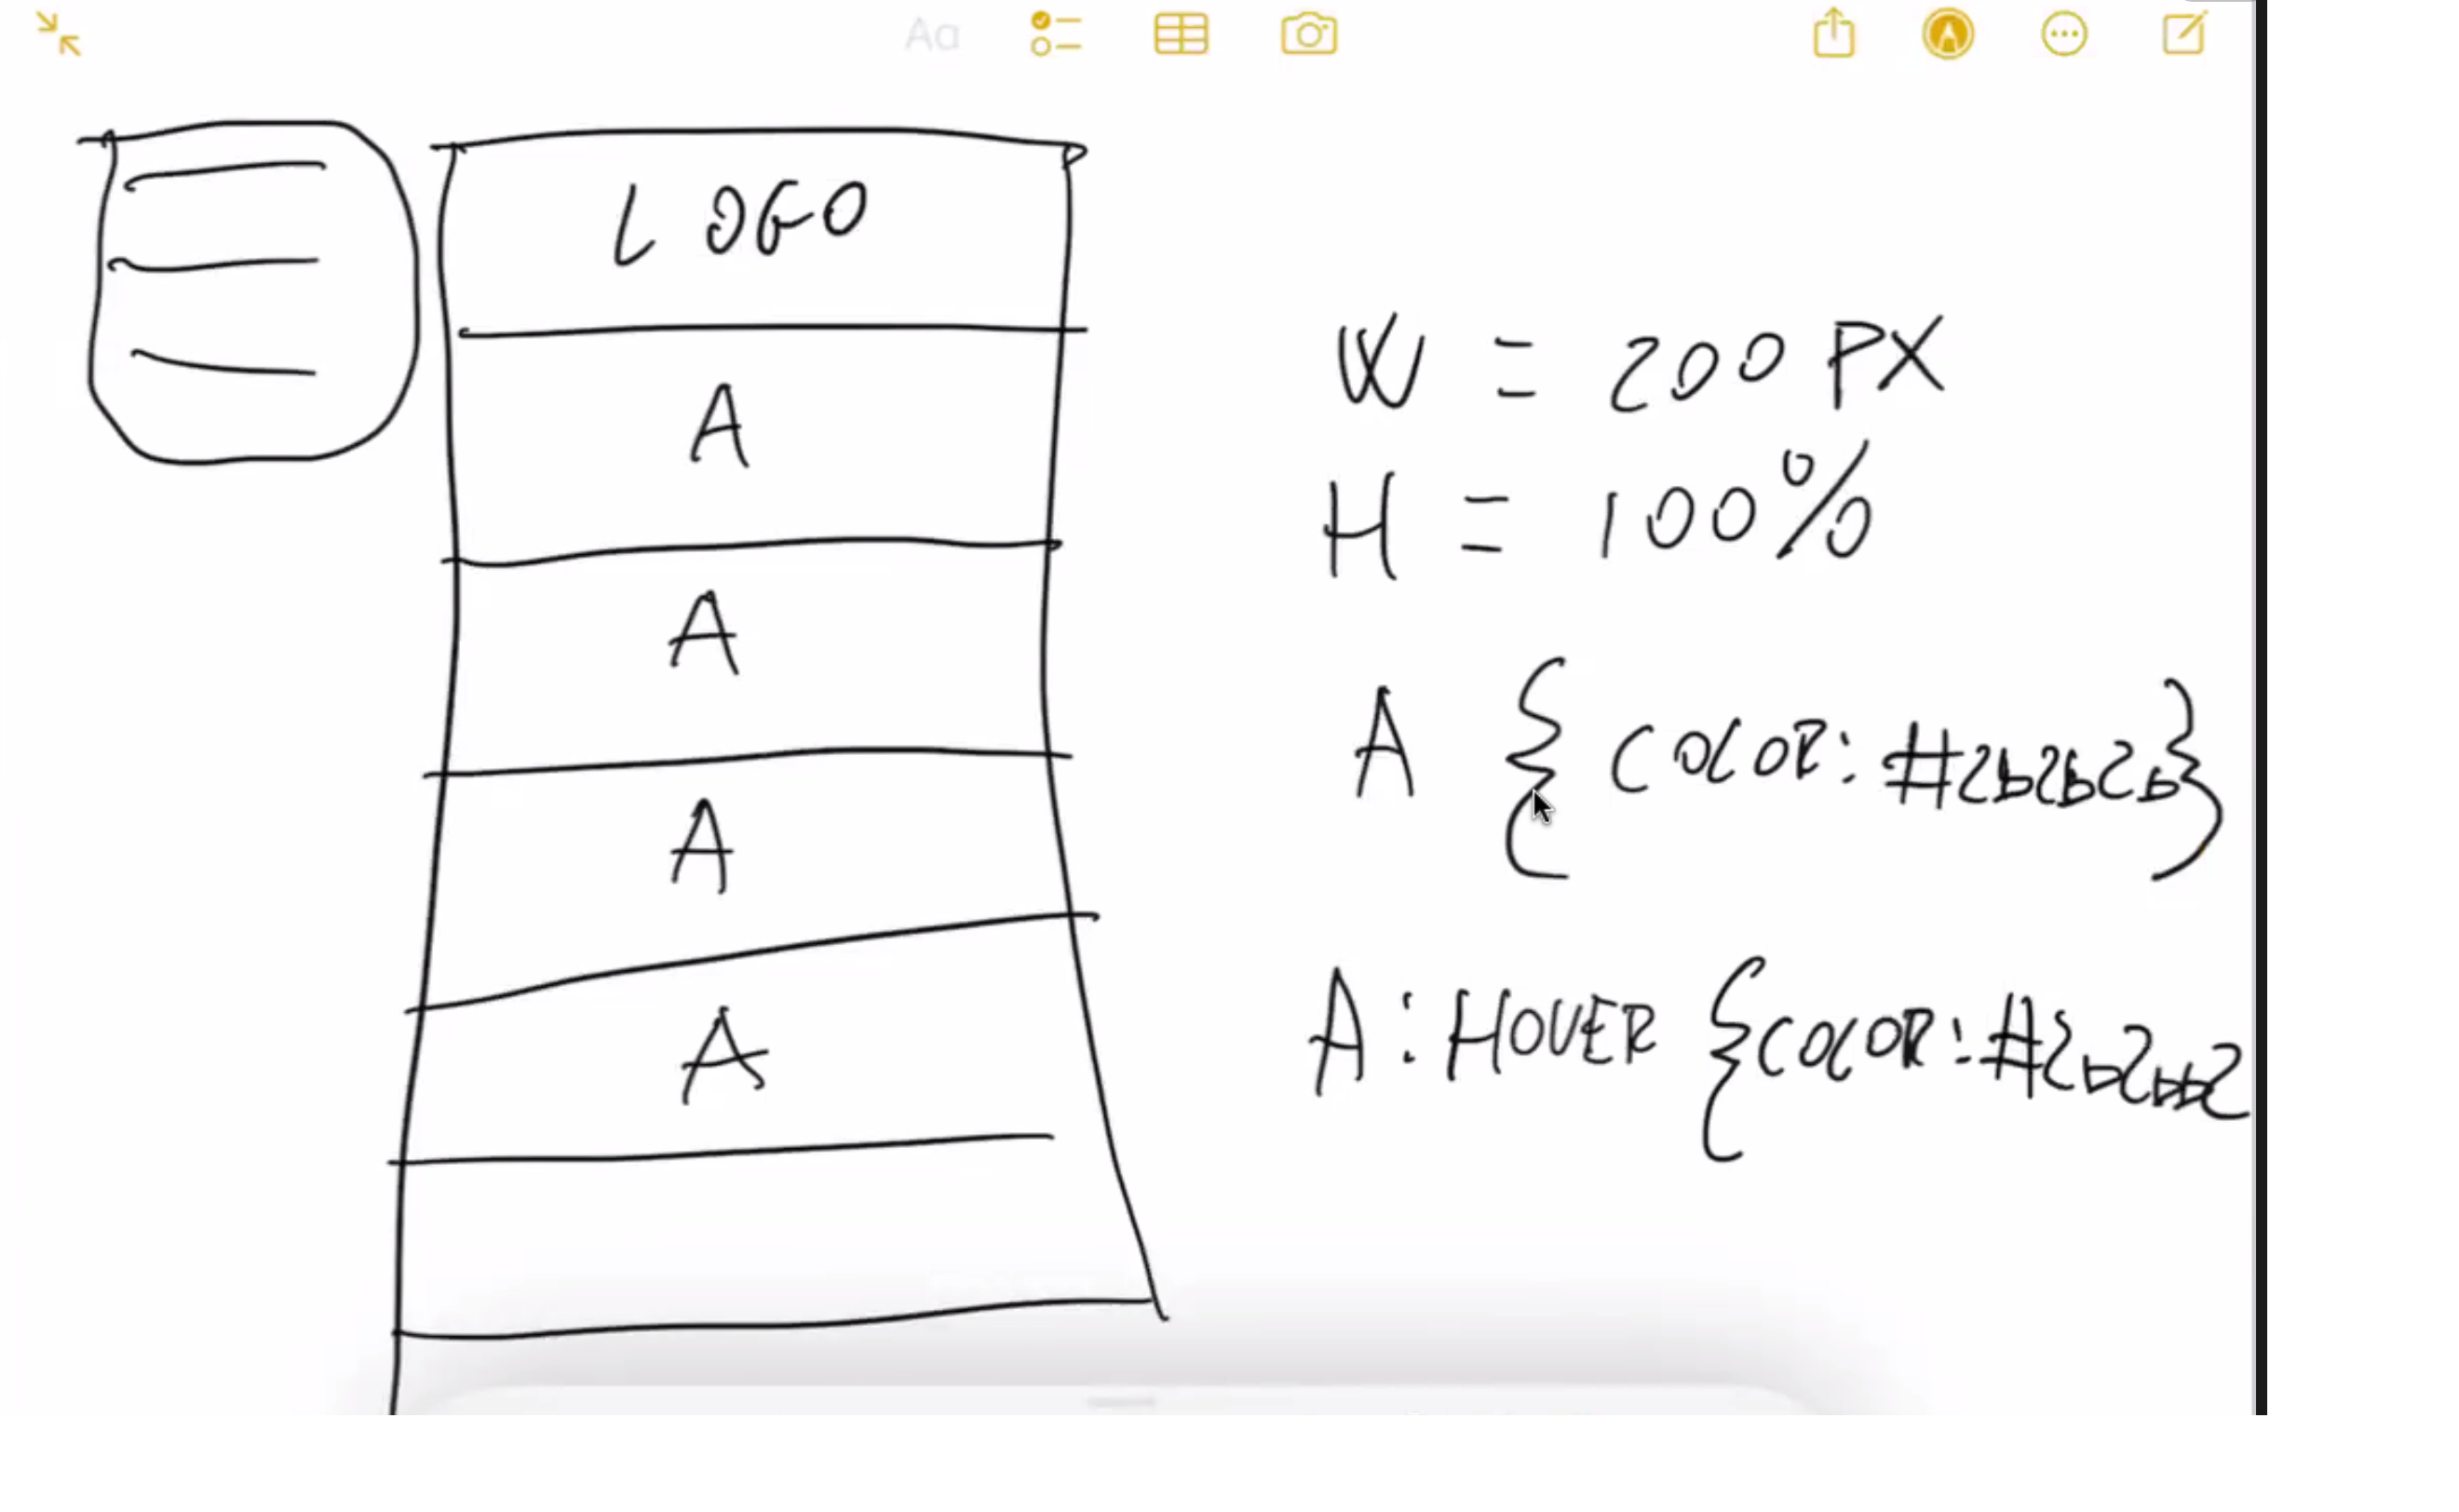 Aa
LOGO
A
A
A
A
W = 200 PX
H = 100%
A { COLOR: #2b2b2b}
A:HOVER {COLOR:#2b2bb2